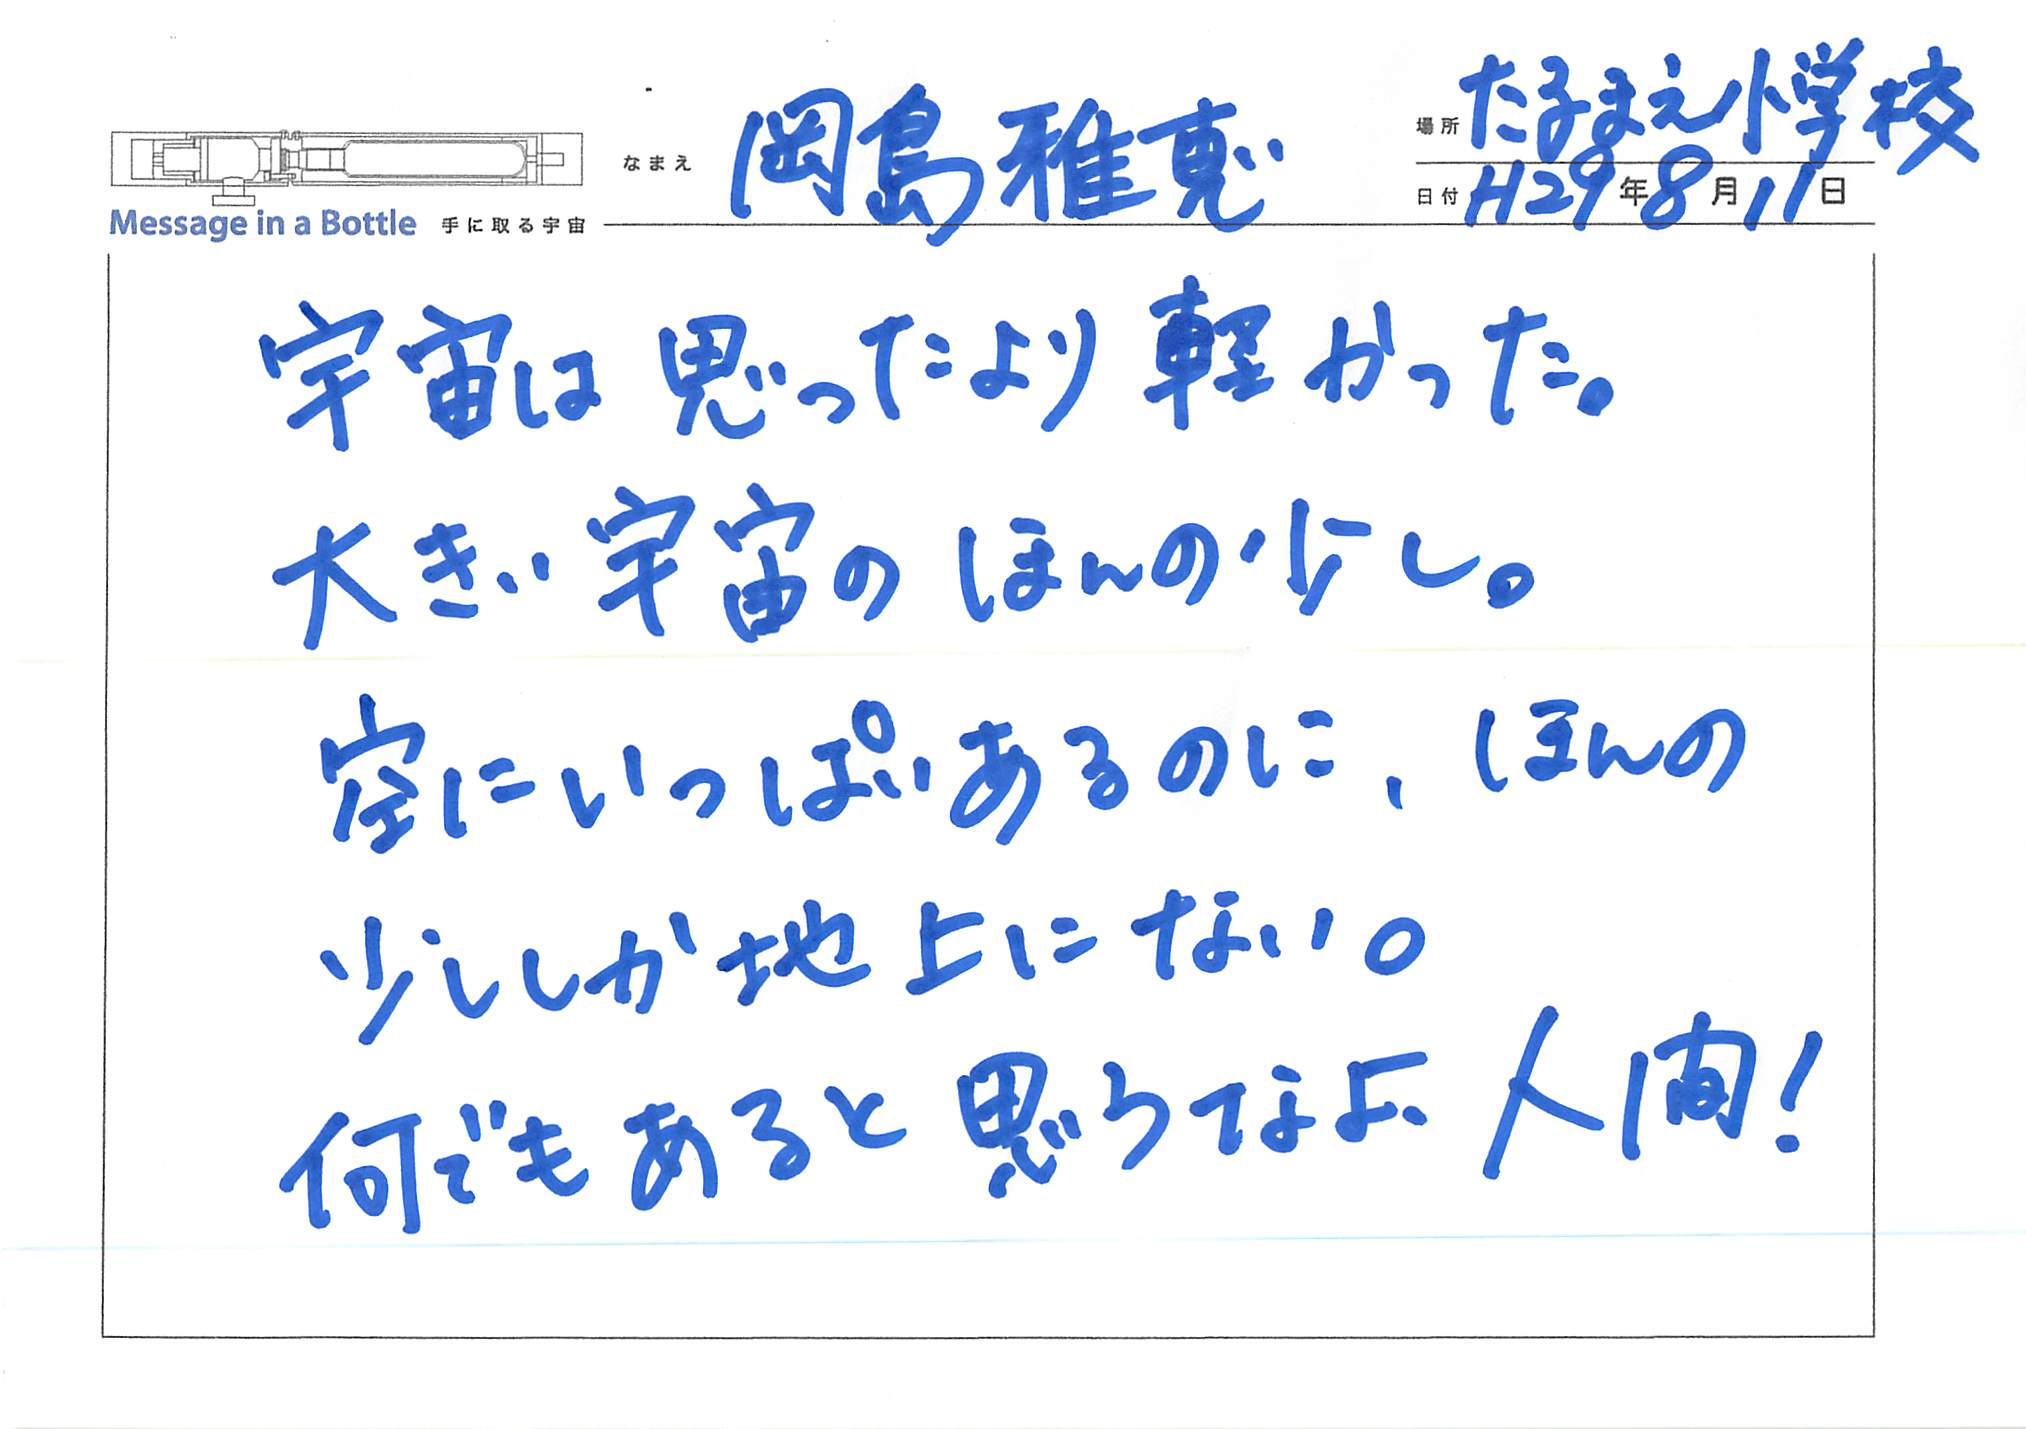 Message in a Bottle 手に取る宇宙
なまえ 岡島雅恵
場所 たるまえ小学校
日付 H29年8月11日
宇宙は思ったより軽かった。
大きい宇宙のほんの少し。
空にいっぱいあるのに、ほんの
少ししか地上にない。
何でもあると思うなよ人間!